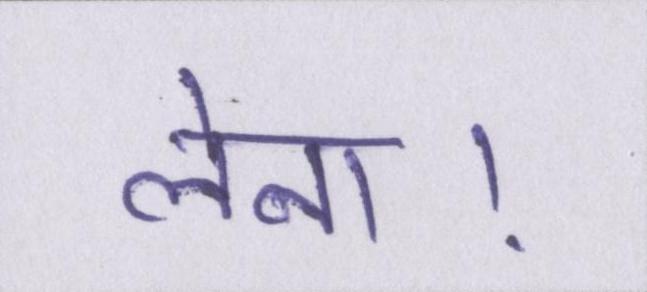 लेना !